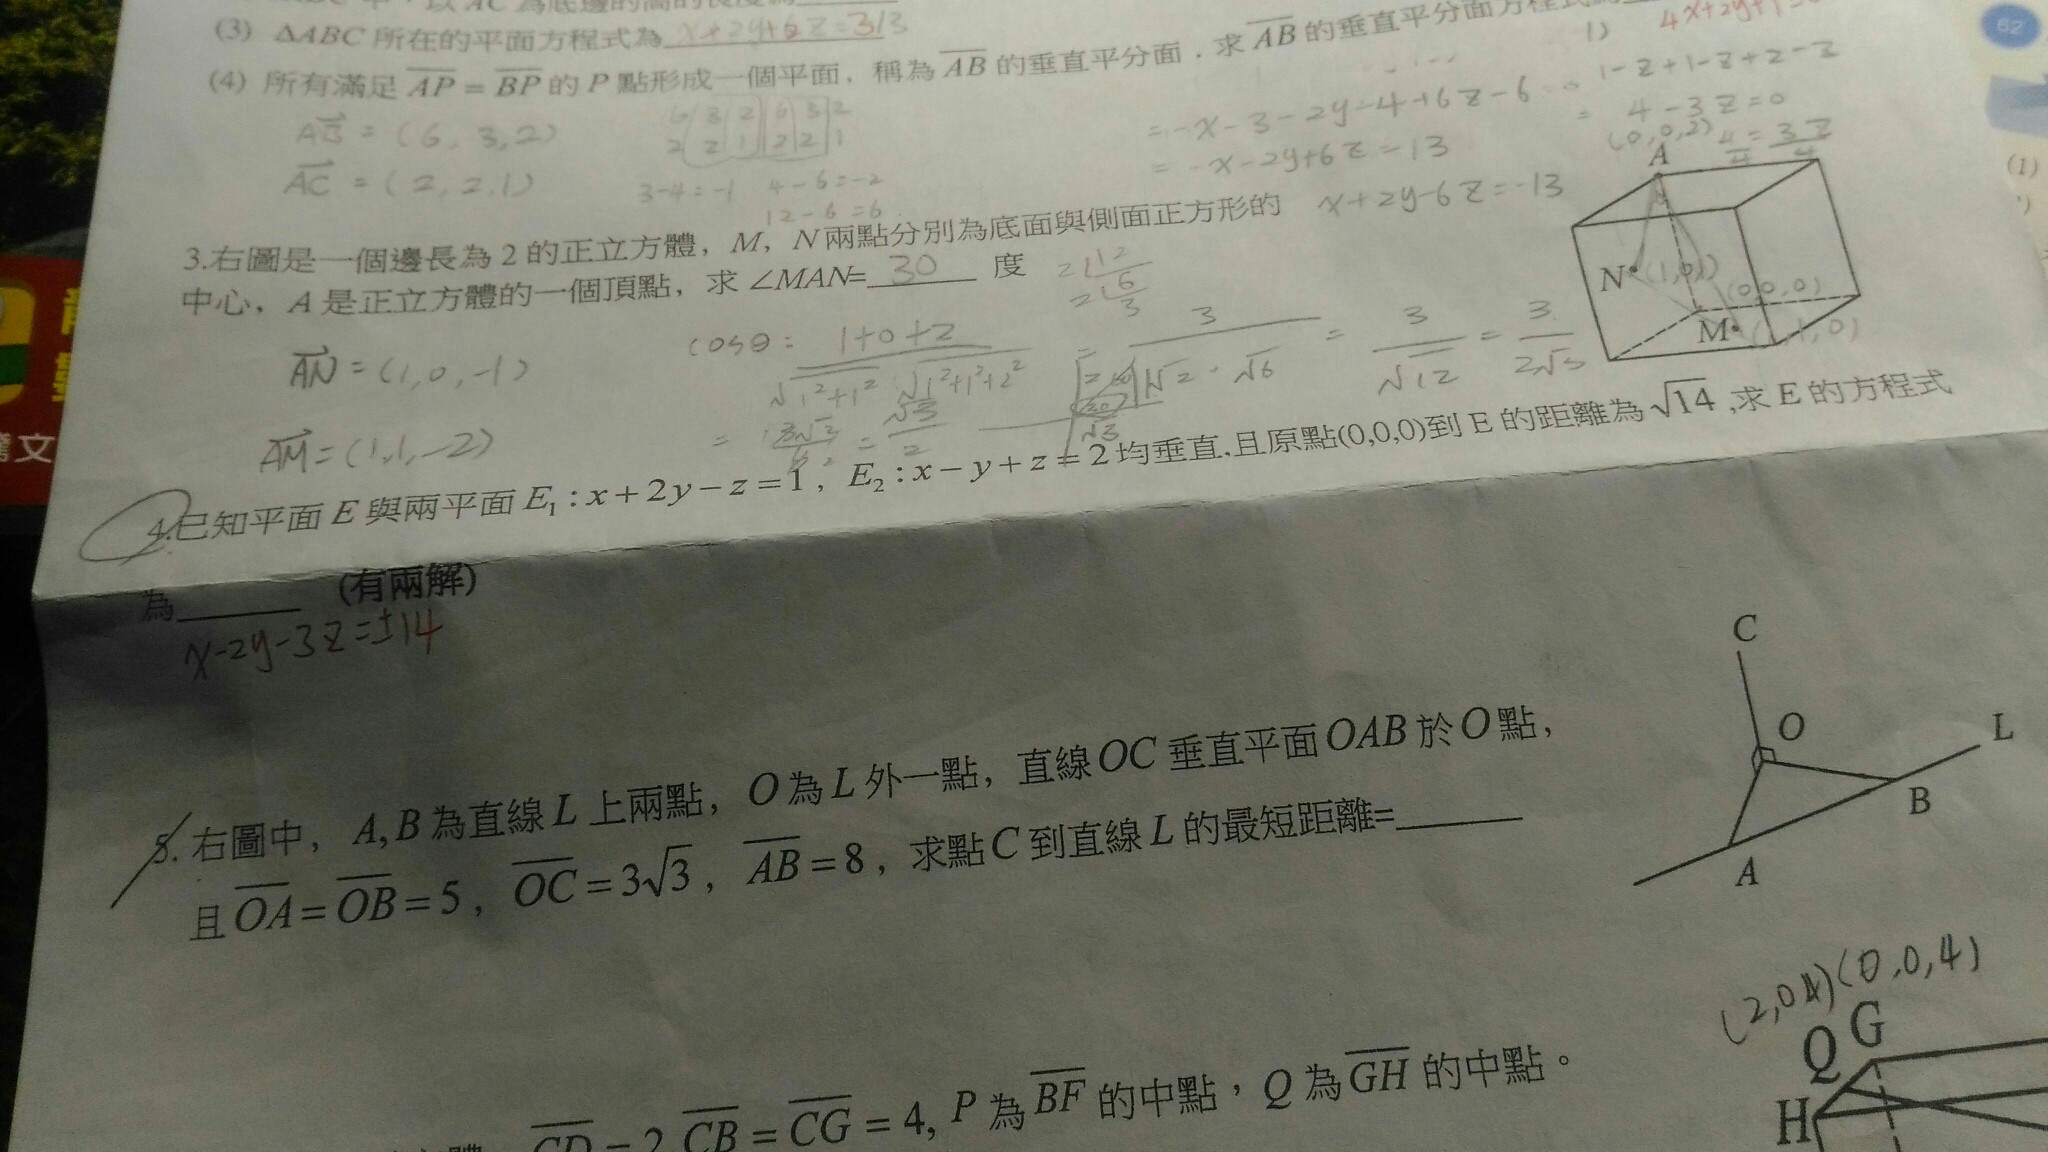 (3) ΔABC 所在的平面方程式為 x+2y+6z=313
(4) 所有滿足 AP = BP 的 P 點形成一個平面，稱為 AB 的垂直平分面．求 AB 的垂直平分面方程式
1) 4x+2y+1=0
62
1-z+1-z+2-z
= 4-3z=0
= -x-3-2y-4+6z-6
= -x-2y+6z-13
x+2y-6z=-13
AB = (6, 3, 2)
AC = (2, 2, 1)
6 3 2 6 3 2
2 2 1 2 2 1
3-4=-1 4-6=-2
12-6=6
(0,0,2)
A
(1)
3.右圖是一個邊長為 2 的正立方體，M，N兩點分別為底面與側面正方形的
中心，A 是正立方體的一個頂點，求 ∠MAN= 30 度
2 12
2 6
3
N (1,0,1)
(0,0,0)
M (1,1,0)
AN = (1, 0, -1)
AM = (1, 1, -2)
cosθ = 1+0+2 / √1²+1² √1²+1²+2² = 3 / √2·√6 = 3 / √12 = 3 / 2√3
= 3√3 / 6 = √3 / 2
4.已知平面 E 與兩平面 E₁ : x + 2y − z = 1，E₂ : x − y + z = 2 均垂直,且原點(0,0,0)到 E 的距離為 √14 ,求 E 的方程式
為 (有兩解)
x-2y-3z=±14
5. 右圖中，A, B 為直線 L 上兩點，O 為 L 外一點，直線 OC 垂直平面 OAB 於 O 點，
且 OA = OB = 5，OC = 3√3，AB = 8，求點 C 到直線 L 的最短距離=
C
O
L
B
A
(2,0,4) (0,0,4)
Q G
H
CD = 2, CB = CG = 4, P 為 BF 的中點，Q 為 GH 的中點。